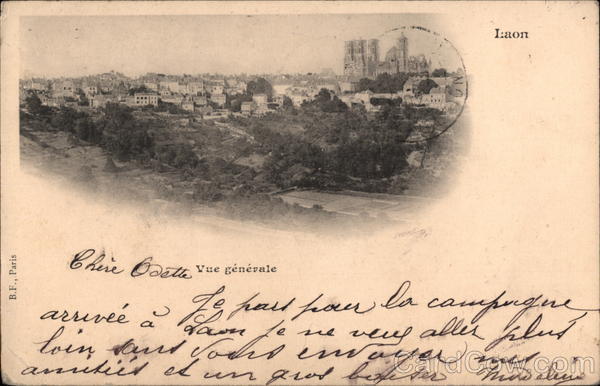 Laon
B.F., Paris
Chère Odette
Vue générale
Je pars pour la campagne
arrivée à Laon je ne veux aller plus
loin sans vous envoyer mes
amitiés et un gros baiser
CardCow.com